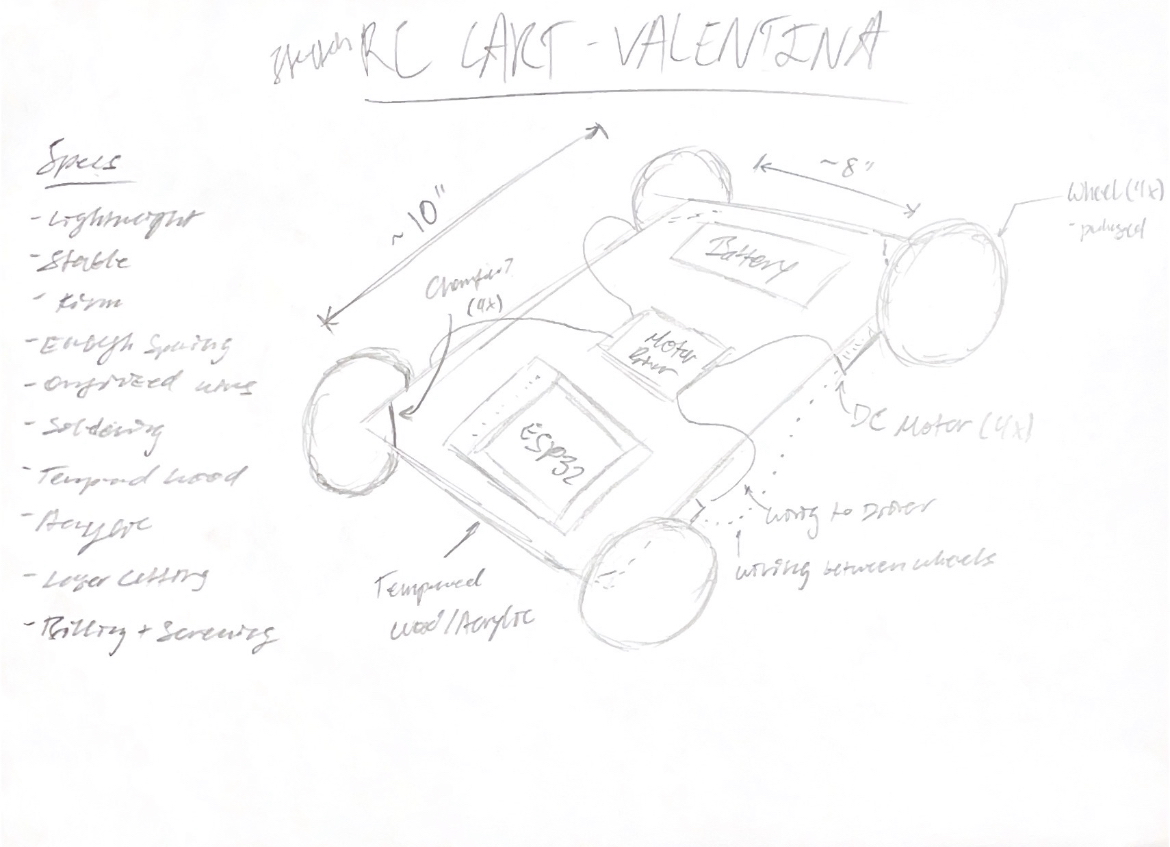 Sketch RC CART - VALENTINA
Specs
- Lightweight
- Stable
- Firm
- Enough Spacing
- Organized wires
- Soldering
- Tempered wood
- Acrylic
- Laser Cutting
- Drilling + Screwing
~ 10"
~ 8"
Wheel (4x)
Chamfer?
(4x)
Battery
Motor
Driver
ESP32
DC Motor (4x)
wiring to Driver
wiring between wheels
Tempered
wood/Acrylic